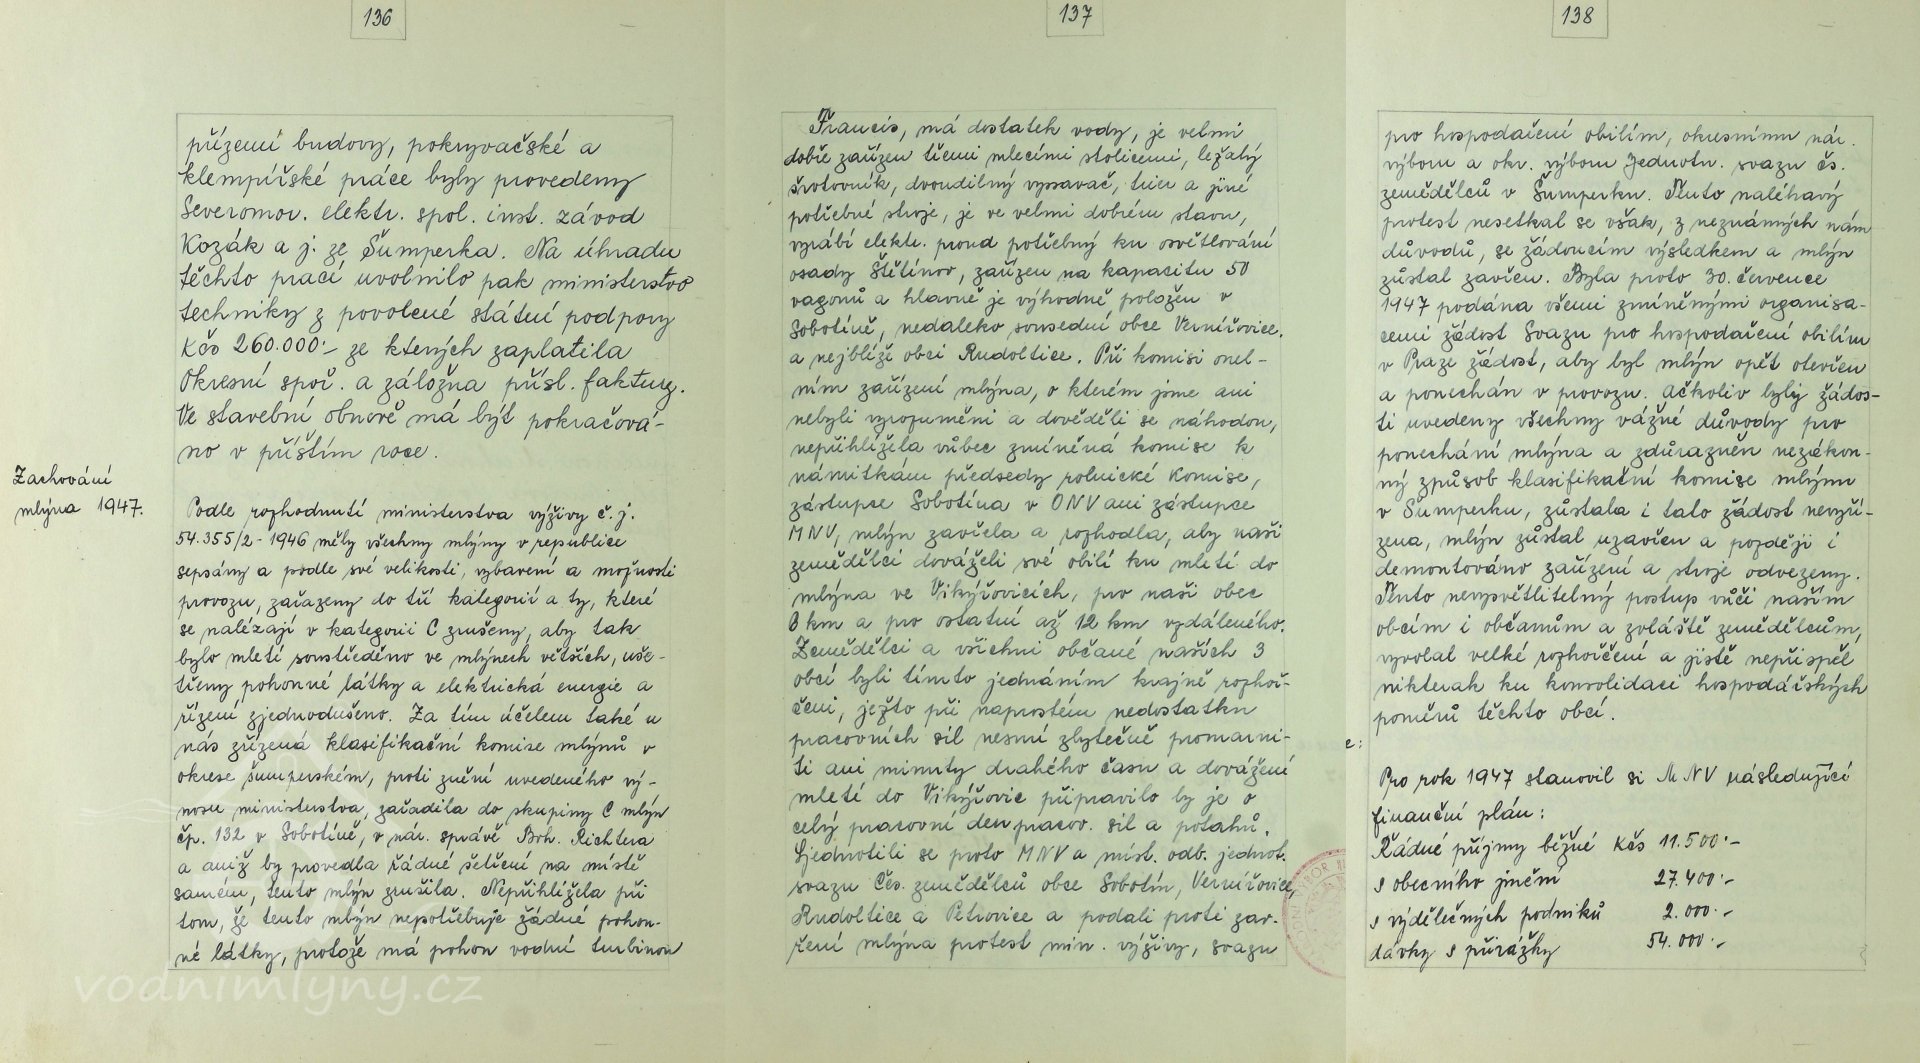 136
přízemí budovy, pokryvačské a
klempířské práce byly provedeny
Severomor. elektr. spol. inst. závod
Kozák a j. ze Šumperka. Na úhradu
těchto prací uvolnilo pak ministerstvo
techniky z povolené státní podpory
Kčs 260.000·- ze kterých zaplatila
Okresní spoř. a záložna přísl. faktury.
Ve stavební obnově má být pokračová-
no v příštím roce.
Zachování
mlýna 1947.
Podle rozhodnutí ministerstva výživy č. j.
54.355/2-1946 měly všechny mlýny v republice
sepsány a podle své velikosti, vybavení a možnosti
provozu, zařazeny do tří kategorií a ty, které
se nalézají v kategorii C zrušeny, aby tak
bylo mletí soustředěno ve mlýnech větších, uše-
třeny pohonné látky a elektrická energie a
řízení zjednodušeno. Za tím účelem také u
nás zřízená klasifikační komise mlýnů v
okrese šumperském, proti znění uvedeného vý-
nosu ministerstva, zařadila do skupiny C mlýn
čp. 132 v Sobotíně, v nár. správě Boh. Richtera
a aniž by provedla řádné šetření na místě
samém, tento mlýn zrušila. Nepřihlížela při
tom, že tento mlýn nepotřebuje žádné pohon-
né látky, protože má pohon vodní turbinou
vodnimlyny.cz
137
Francis, má dostatek vody, je velmi
dobře zařízen třemi mlecími stolicemi, ležatý
šrotovník, dvoudílný vysavač, trier a jiné
potřebné stroje, je ve velmi dobrém stavu,
vyrábí elektr. proud potřebný ku osvětlování
osady Štětínov, zařízen na kapacitu 50
vagonů a hlavně je výhodně položen v
Sobotíně, nedaleko sousední obce Vernířovice.
a nejblíže obci Rudoltice. Při komisi onel-
ním zařízení mlýna, o kterém jsme ani
nebyli vyrozuměni a dověděli se náhodou,
nepřihlížela vůbec zmíněná komise k
námitkám předsedy rolnické komise,
zástupce Sobotína v ONV ani zástupce
MNV, mlýn zavřela a rozhodla, aby naši
zemědělci dováželi své obilí ku mletí do
mlýna ve Vikýřovicích, pro naši obec
8 km a pro ostatní až 12 km vzdáleného.
Zemědělci a všichni občané našich 3
obcí byli tímto jednáním krajně rozhoř-
čeni, ježto při naprostém nedostatku
pracovních sil nesmí zbytečně promarni-
ti ani minuty drahého času a dovážení
mletí do Vikýřovic připravilo by je o
celý pracovní den pracov. sil a potahů.
Sjednotili se proto MNV a míst. odb. jednot.
svazu čes. zemědělců obce Sobotín, Vernířovice,
Rudoltice a Petrovice a podali proti zav-
ření mlýna protest min. výživy, svazu
138
pro hospodaření obilím, okresnímu nár.
výboru a okr. výboru Jednotn. svazu čs.
zemědělců v Šumperku. Tento naléhavý
protest nesetkal se však, z neznámých nám
důvodů, se žádoucím výsledkem a mlýn
zůstal zavřen. Byla proto 30. července
1947 podána všemi zmíněnými organisa-
cemi žádost Svazu pro hospodaření obilím
v Praze žádost, aby byl mlýn opět otevřen
a ponechán v provozu. Ačkoliv byly žádos-
ti uvedeny všechny vážné důvody pro
ponechání mlýna a zdůrazněn nezákon-
ný způsob klasifikační komise mlýnů
v Šumperku, zůstala i tato žádost nevyří-
zena, mlýn zůstal uzavřen a později i
demontováno zařízení a stroje odvezeny.
Tento nevysvětlitelný postup vůči našim
obcím i občanům a zvláště zemědělcům,
vyvolal velké rozhořčení a jistě nepřispěl
nikterak ku konsolidaci hospodářských
poměrů těchto obcí.
Pro rok 1947 stanovil si MNV následující
finanční plán:
Řádné příjmy běžné Kčs 11.500·-
s obecního jmění 27.400·-
s výdělečných podniků 2.000·-
dávky s přirážky 54.000·-